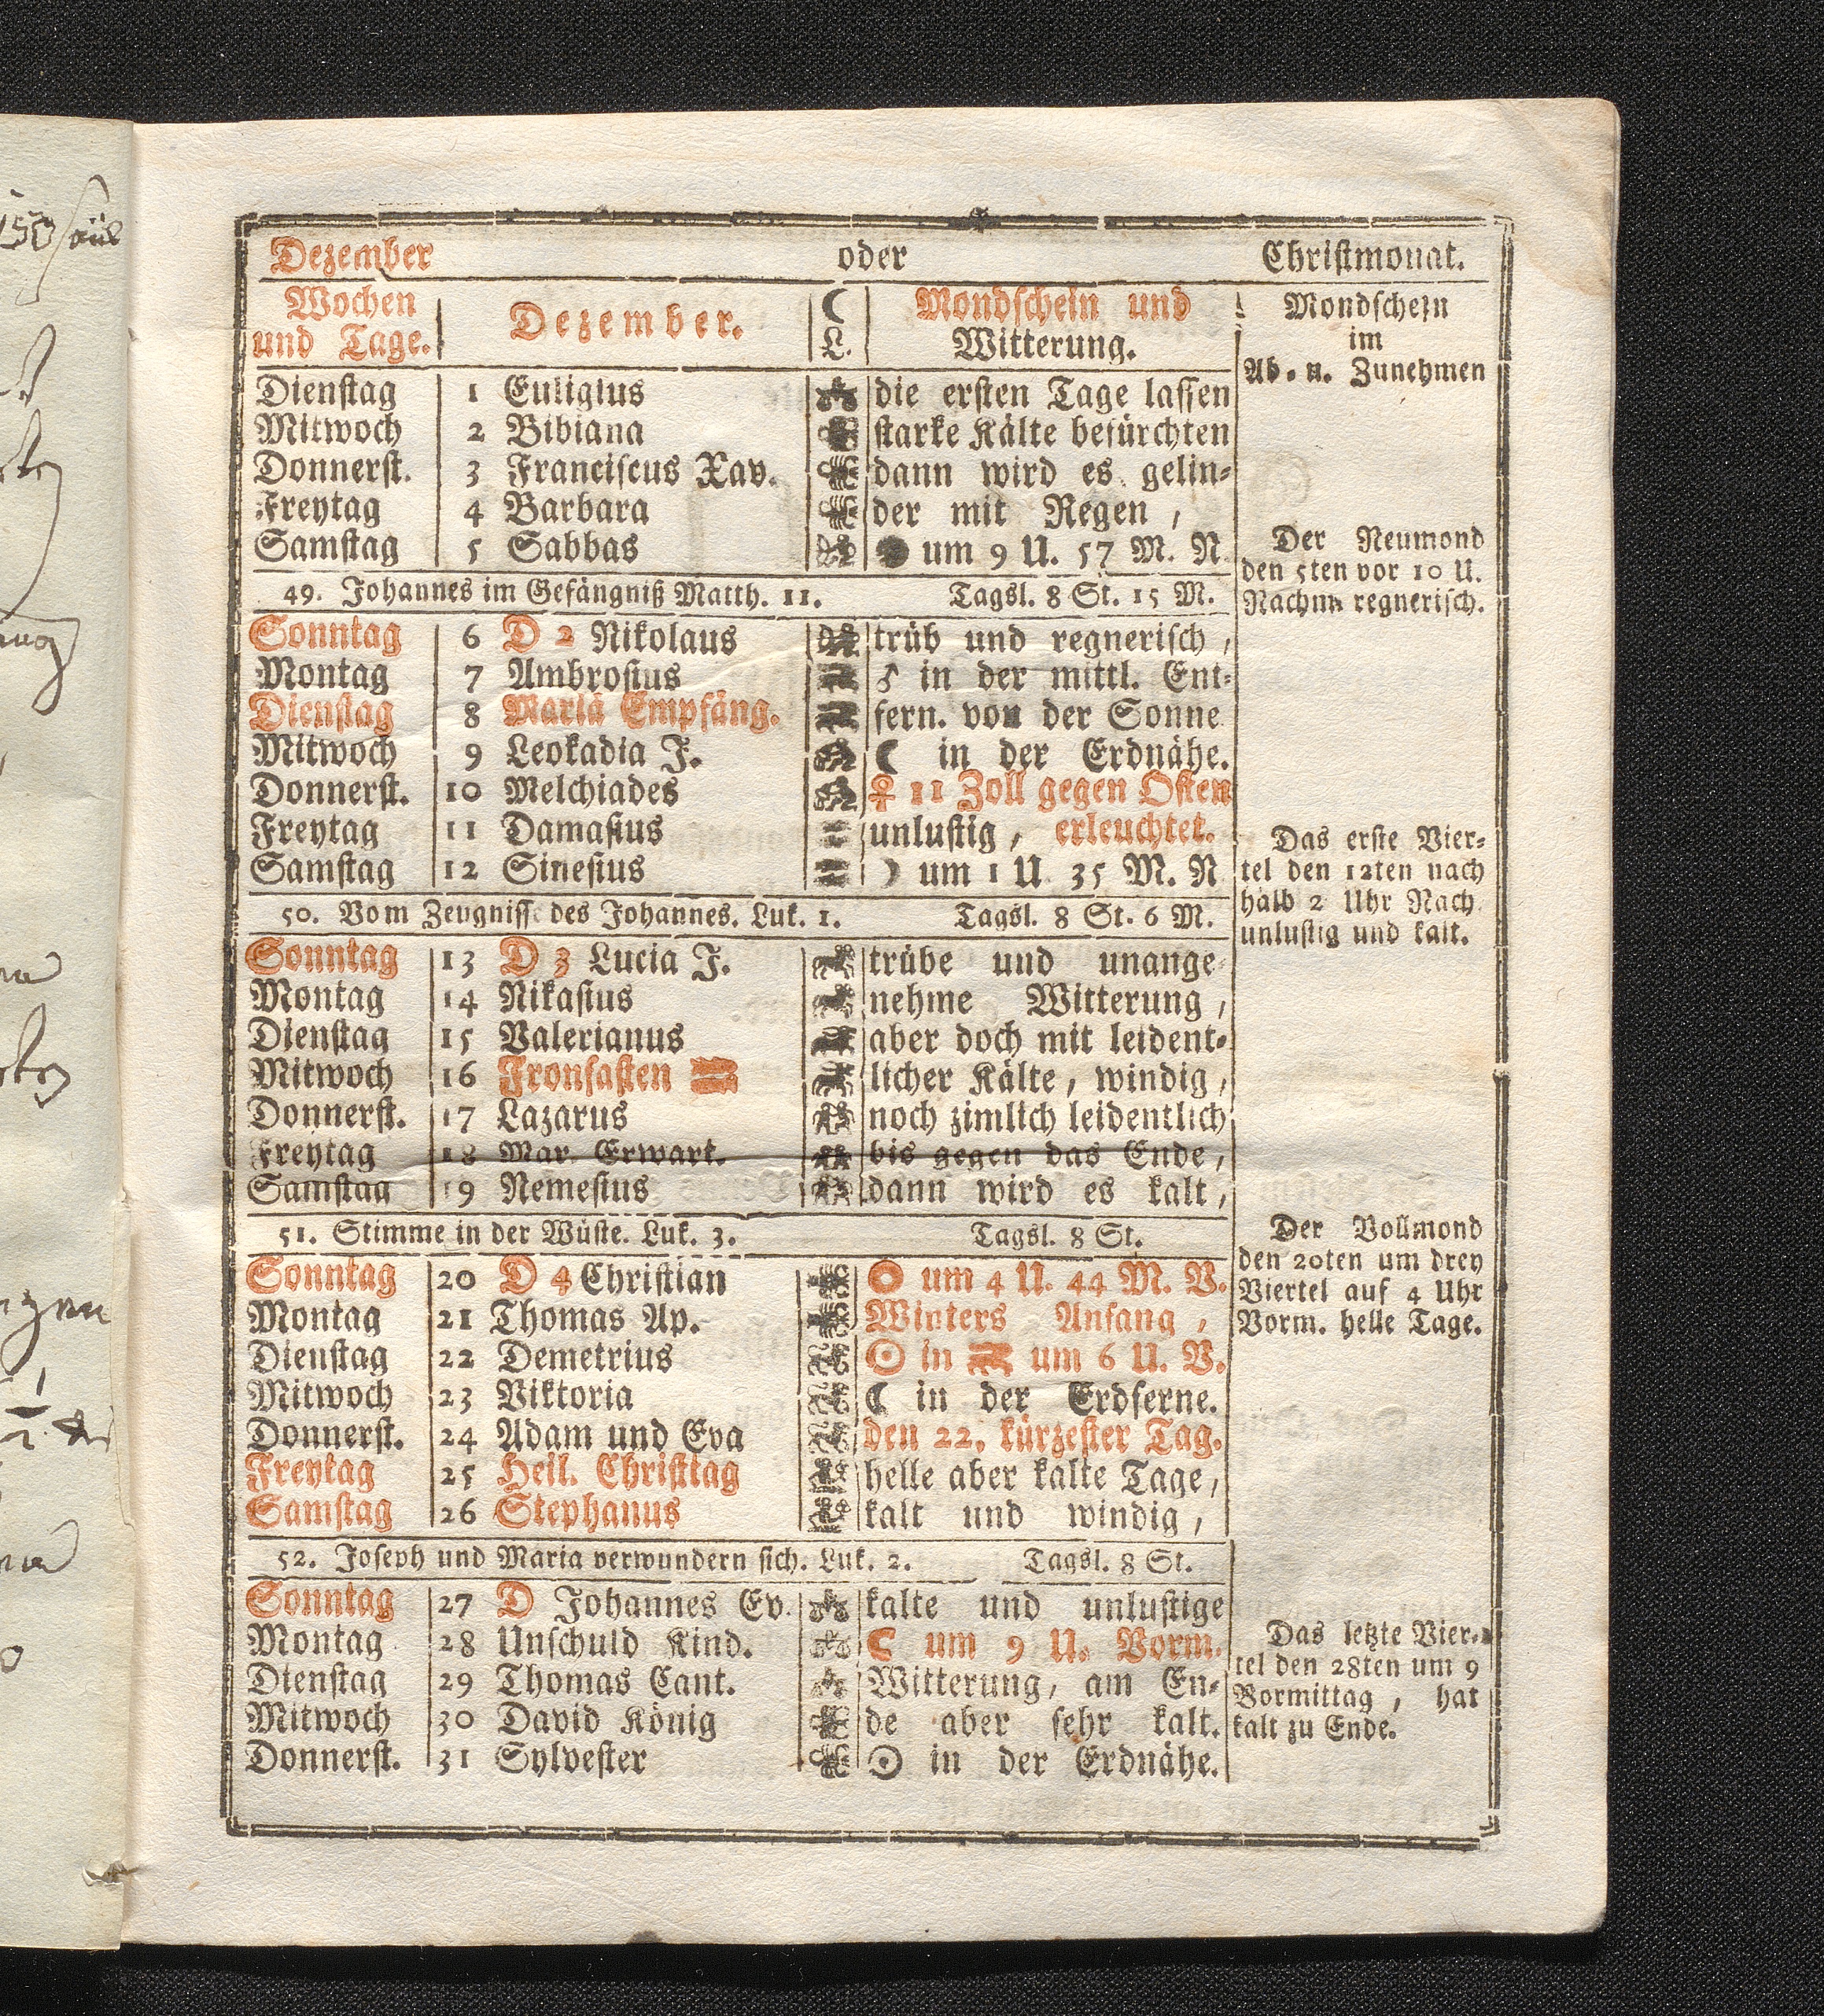 Dezember oder Christmonat.
Wochen und Tage. Dezember. ☾ L. Mondschein und Witterung. Mondschein im Ab- u. Zunehmen
Dienstag 1 Euligius die ersten Tage lassen
Mitwoch 2 Bibiana starke Kälte befürchten
Donnerst. 3 Franciscus Xav. dann wird es gelin-
Freytag 4 Barbara der mit Regen,
Samstag 5 Sabbas ● um 9 U. 57 M. N
Der Neumond
den 5ten vor 10 U.
Nachm. regnerisch.
49. Johannes im Gefängniß Matth. 11. Tagsl. 8 St. 15 M.
Sonntag 6 D 2 Nikolaus trüb und regnerisch,
Montag 7 Ambrosius ♂ in der mittl. Ent-
Dienstag 8 Mariä Empfäng. fern. von der Sonne
Mitwoch 9 Leokadia J. ☾ in der Erdnähe.
Donnerst. 10 Melchiades ♀ 11 Zoll gegen Osten
Freytag 11 Damasius unlustig, erleuchtet.
Samstag 12 Sinesius ☽ um 1 U. 35 M. N
Das erste Vier-
tel den 12ten nach
halb 2 Uhr Nach.
unlustig und kalt.
50. Vom Zeugniss des Johannes. Luk. 1. Tagsl. 8 St. 6 M.
Sonntag 13 D 3 Lucia J. trübe und unange-
Montag 14 Nikasius nehme Witterung,
Dienstag 15 Valerianus aber doch mit leident-
Mitwoch 16 Fronfasten licher Kälte, windig,
Donnerst. 17 Lazarus noch zimlich leidentlich
Freytag 18 Mar. Erwart. bis gegen das Ende,
Samstag 19 Nemesius dann wird es kalt,
51. Stimme in der Wüste. Luk. 3. Tagsl. 8 St.
Der Vollmond
den 20ten um drey
Viertel auf 4 Uhr
Vorm. helle Tage.
Sonntag 20 D 4 Christian ○ um 4 U. 44 M. V.
Montag 21 Thomas Ap. Winters Anfang,
Dienstag 22 Demetrius ☉ in ♑ um 6 U. V.
Mitwoch 23 Viktoria ☾ in der Erdferne.
Donnerst. 24 Adam und Eva den 22. kürzester Tag.
Freytag 25 Heil. Christtag helle aber kalte Tage,
Samstag 26 Stephanus kalt und windig,
52. Joseph und Maria verwundern sich. Luk. 2. Tagsl. 8 St.
Sonntag 27 D Johannes Ev. kalte und unlustige
Montag 28 Unschuld Kind. ☾ um 9 U. Vorm.
Dienstag 29 Thomas Cant. Witterung, am En-
Mitwoch 30 David König de aber sehr kalt.
Donnerst. 31 Sylvester ☉ in der Erdnähe.
Das letzte Vier-
tel den 28ten um 9
Vormittag, hat
kalt zu Ende.